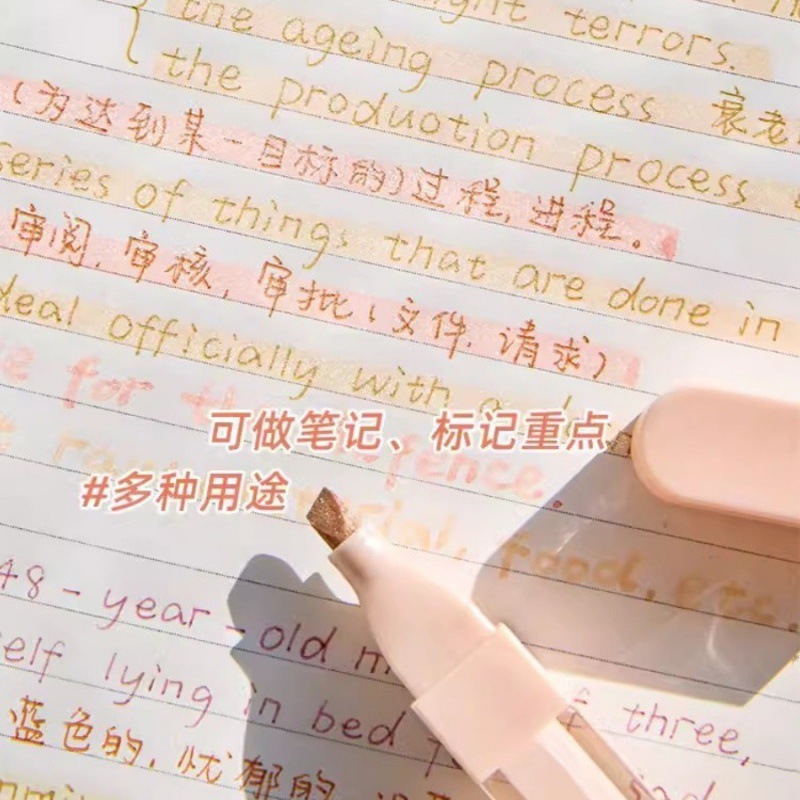 ght terrors.
the ageing process 衰老
the produotion process
(为达到某一目标的)过程,进程。
series of things that are done in
审阅,审核,审批(文件.请求)
deal officially with a
for
可做笔记、标记重点
fence.
#多种用途
food, etc.
48-year-old m
self lying in bed
three,
蓝色的,忧郁的